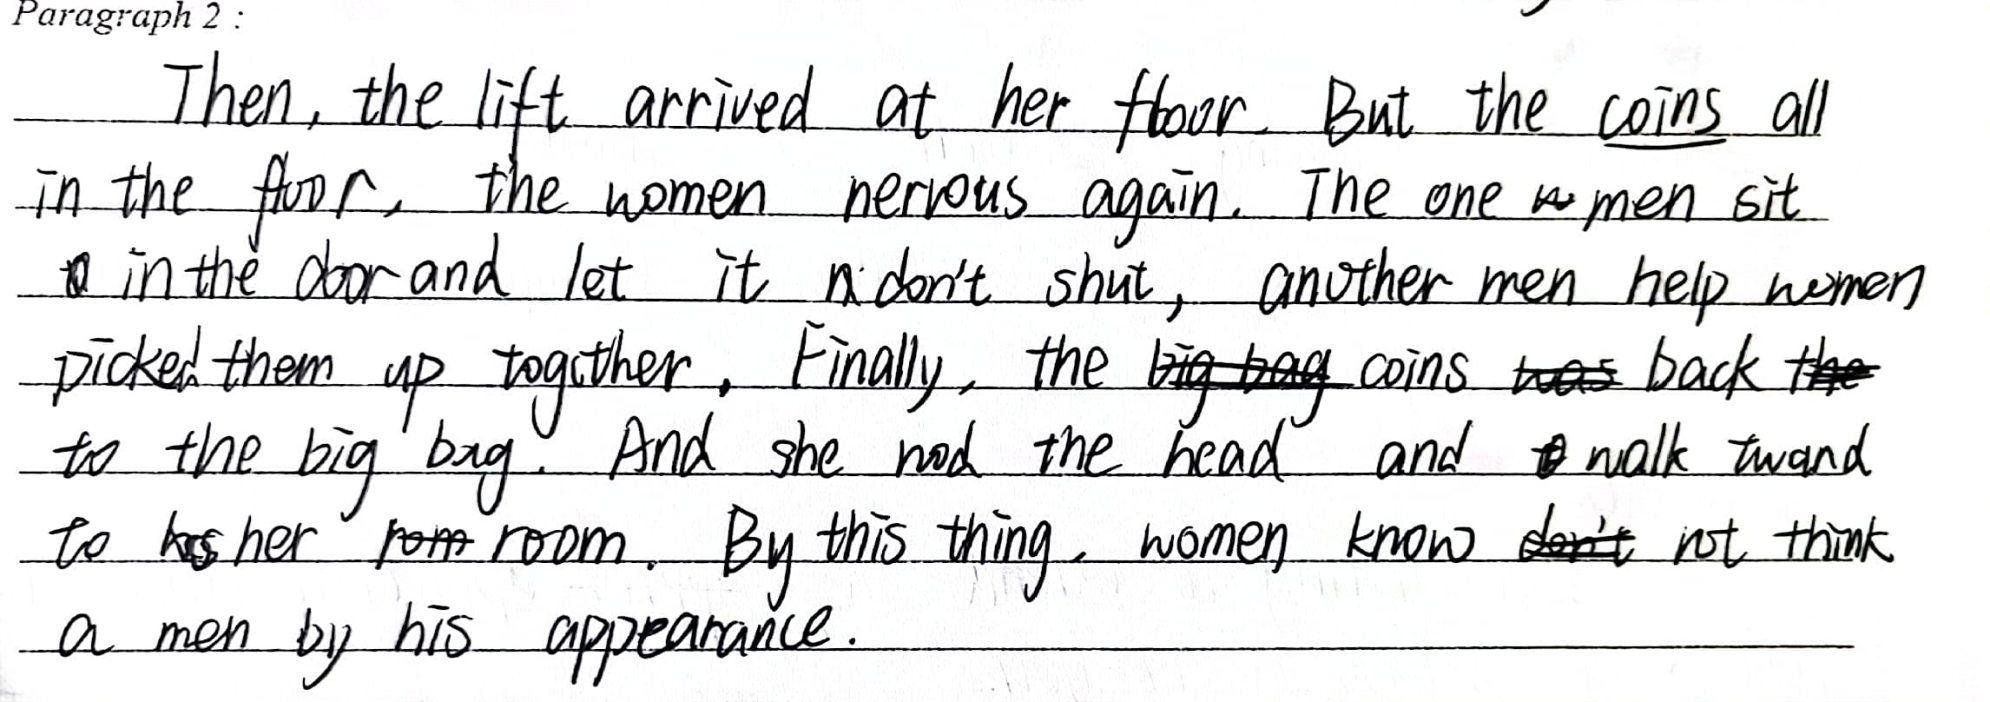 Paragraph 2 :
Then, the lift arrived at her floor. But the coins all
in the floor, the women nervous again. The one men sit
in the door and let it don't shut, another men help women
picked them up togther. Finally, the big bag coins was back the
to the big bag. And she nod the head and walk twand
to his her rom room. By this thing, women know don't not think
a men by his appearance.